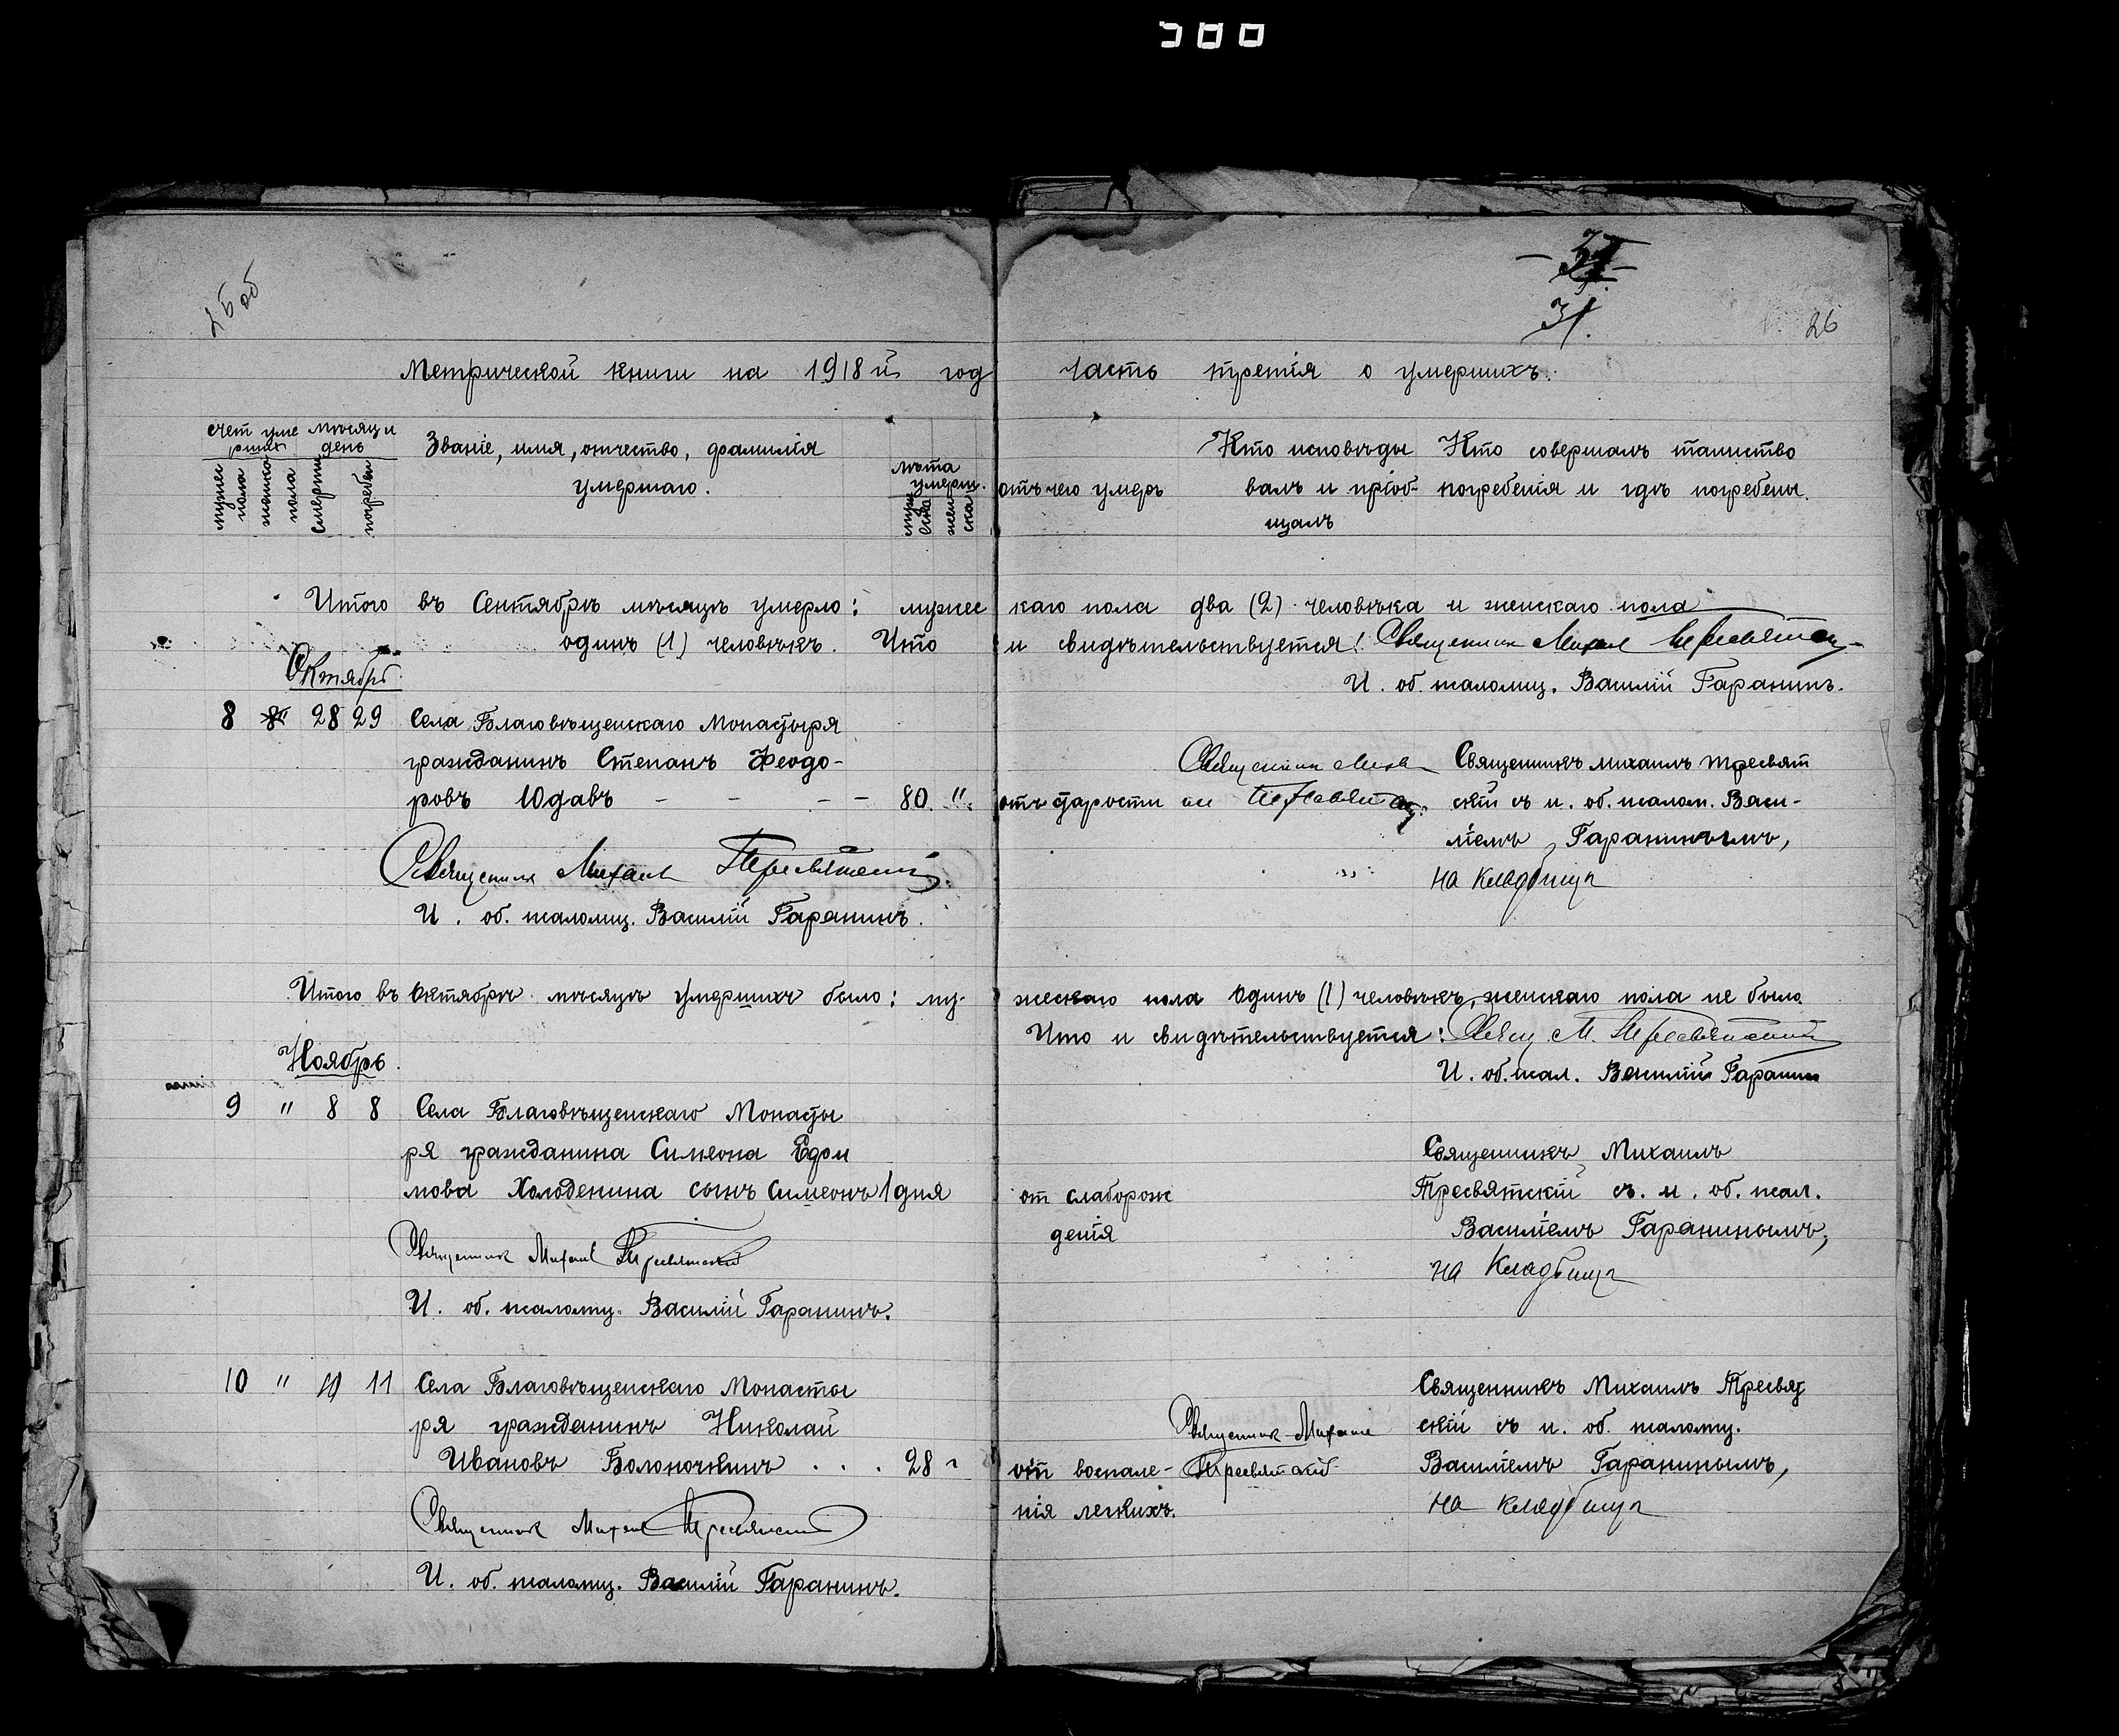 25 об
31.
26
Метрической книги на 1918 й год
Часть третія о умершихъ.
Счет умерших
мужес пола
женска пола
мѣсяц и день
смерти
погребе
Званіе, имя, отчество, фамилія
умершаго.
лѣта умерш.
муж ска
жен ска
отъ чего умеръ
Кто исповѣды
валъ и пріоб-
щалъ
Кто совершалъ таинство
погребенія и гдѣ погребены.
Итого въ Сентябрѣ мѣсяцѣ умерло: мужес каго пола два (2) человѣка и женскаго пола
одинъ (1) человѣкъ. Что и свидѣтельствуется: Священник Михаил Тресвятский
И. об. псаломщ. Василій Гаранинъ.
Октябрь
8 28 29 Села Благовѣщенскаго Монастыря
гражданинъ Степанъ Ѳеодо-
ровъ Юдавъ - - - - 80 "
отъ старости
Священник Михаил Тресвятский
Священникъ Михаилъ Тресвят
скій съ и. об. псалом. Васи-
ліемъ Гаранинымъ,
на кладбищѣ
Священник Михаил Тресвятский
И. об. псаломщ. Василій Гаранинъ.
Итого въ Октябрѣ мѣсяцѣ умершихъ было: му- жескаго пола одинъ (1) человѣкъ, женскаго пола не было
Что и свидѣтельствуется: Свящ. М. Тресвятский
И. об. псал. Василій Гаранин
Ноябрь.
9 " 8 8 Села Благовѣщенскаго Монасты
ря гражданина Симеона Ефи
мова Холоденина сынъ Симеонъ 1 дня
от слаборож
денія
Священникъ Михаилъ
Тресвятскій съ. и. об. псал.
Василіемъ Гаранинымъ,
на Кладбищѣ
Священник Михаил Тресвятский
И. об. псаломщ. Василій Гаранинъ.
10 " 10 11 Села Благовѣщенскаго Монасты
ря гражданинъ Николай
Ивановъ Болоночкинъ . . . 28 "
отъ воспале-
нія легкихъ.
Священник Михаил
Тресвятский
Священникъ Михаилъ Тресвят
скій съ и. об. псаломщ.
Василіемъ Гаранинымъ,
на кладбищѣ
Священник Михаил Тресвятский
И. об. псаломщ. Василій Гаранинъ.